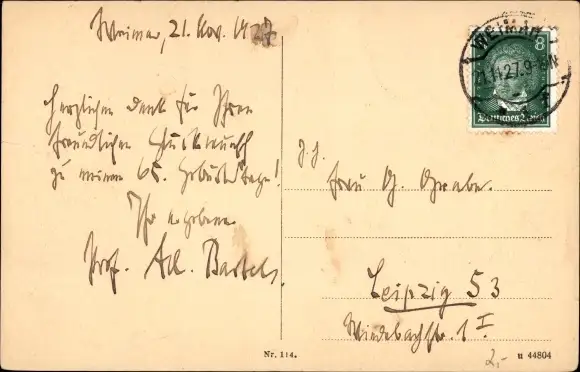 Weimar, 21. Nov. 1927
Herzlichen Dank für Ihren
freundlichen Glückwunsch
zu meinem 65. Geburtstage!
Ihr ergebener
Prof. Ad. Bartels.
WEIMAR
21.11.27.9-10V
8
Deutsches Reich
Frau G. Grabe.
Leipzig S 3
Wiedebachstr. 1 I
Nr. 114.
2,-
u 44804